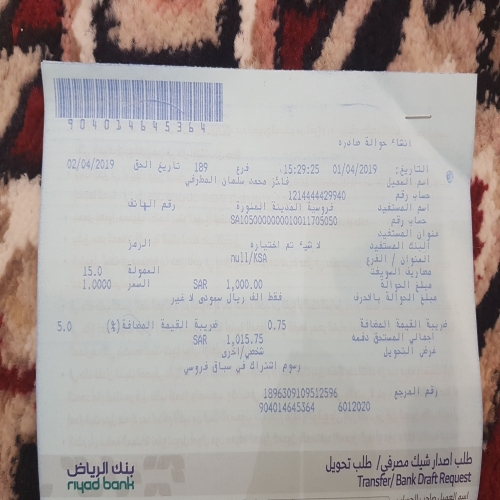 904014645364
انشاء حوالة صادره
التاريخ: 01/04/2019 15:29:25، فرع 189 تاريخ الحق 02/04/2019
اسم العميل فائز محمد سلمان المطرفي
حساب رقم 1214444429940
اسم المستفيد فروسية المدينة المنورة رقم الهاتف
حساب رقم SA1050000000010011705050
عنوان المستفيد
البنك المستفيد لا شيء تم اختياره الرمز
العنوان / الفرع null/KSA
مصاريف السويفت العمولة 15.0
مبلغ الحوالة SAR 1,000.00 السعر 1.0000
مبلغ الحوالة بالاحرف فقط الف ريال سعودي لا غير
ضريبة القيمة المضافة 0.75 ضريبة القيمة المضافة(%) 5.0
اجمالي المستحق دفعه SAR 1,015.75
غرض التحويل شخصي/اخرى
رسوم اشتراك في سباق فروسي
رقم المرجع 1896309109512596
904014645364 6012020
طلب اصدار شيك مصرفي/ طلب تحويل
Transfer/ Bank Draft Request
بنك الرياض
riyad bank